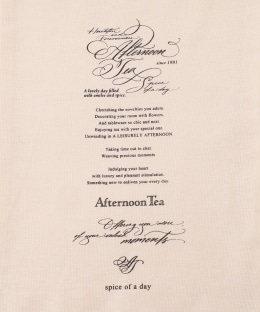 Afternoon
Tea
since 1981
Spice
of a day
A lovely day filled
with smiles and spice.
Cherishing the novelties you adore.
Decorating your room with flowers.
And tableware so chic and neat
Enjoying tea with your special one
Unwinding in A LEISURELY AFTERNOON
Taking time out to chat
Weaving precious moments
Indulging your heart
with luxury and pleasant stimulation.
Something new to enliven your every day.
Afternoon Tea
Offering you more
of your valued moments
spice of a day